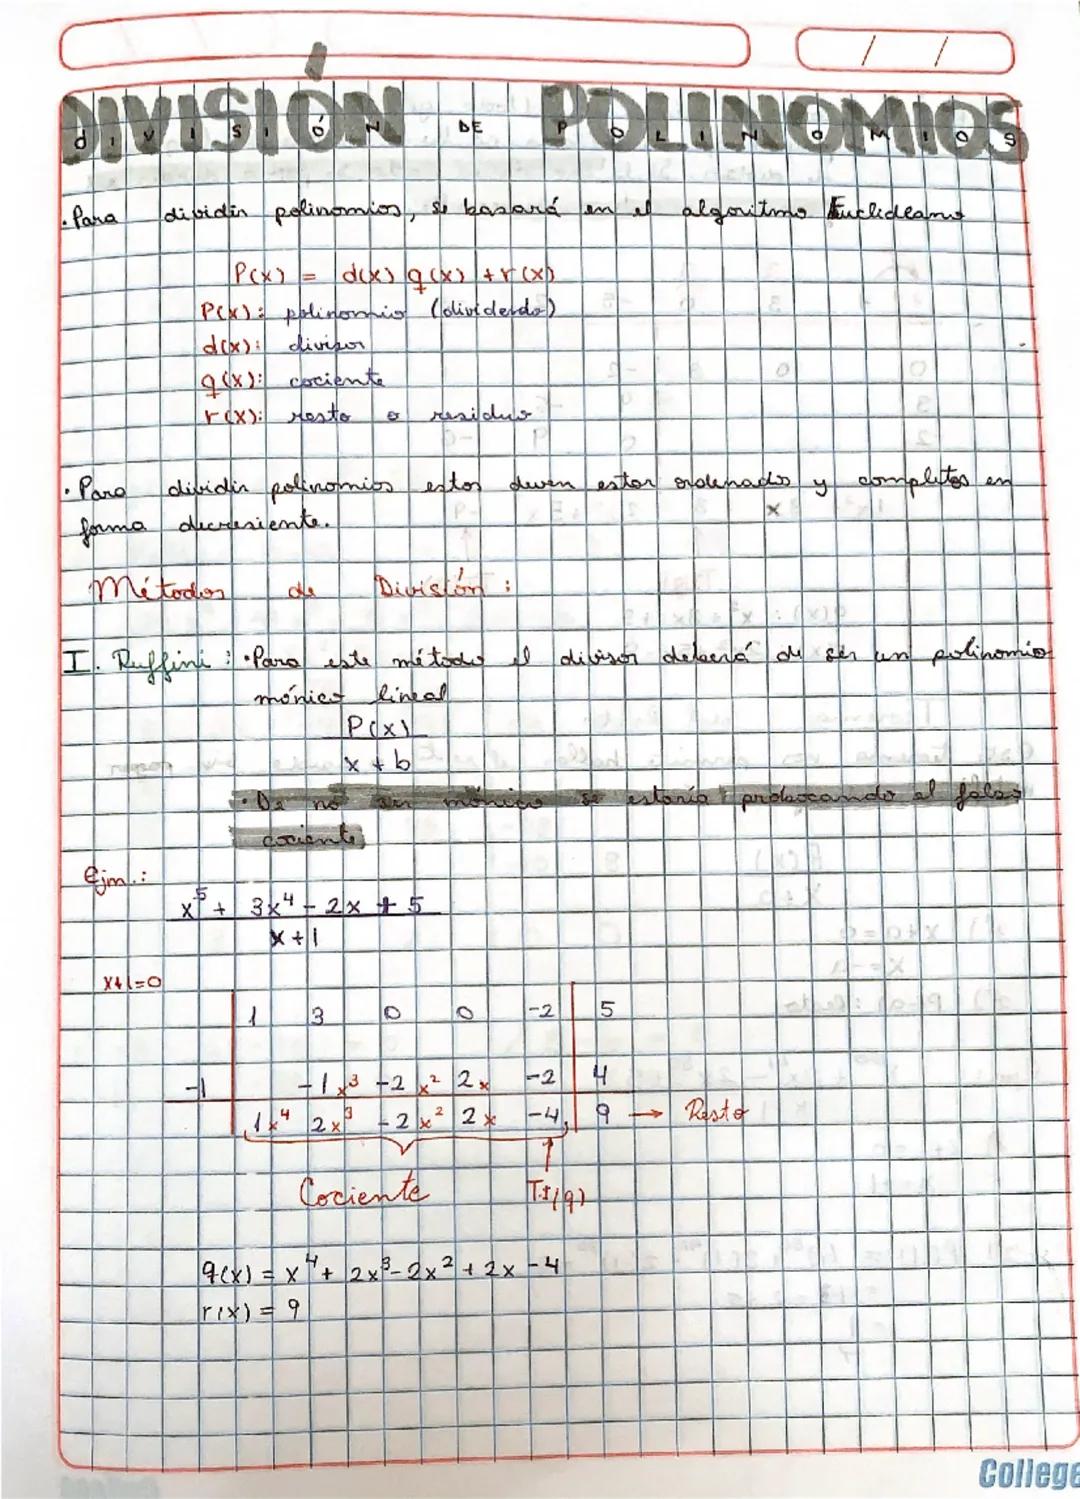 DIVISIÓN DE POLINOMIOS
. Para dividir polinomios, se basará en el algoritmo Euclideano
P(x) = d(x) q(x) + r(x)
P(x): polinomio (dividendo)
d(x): divisor
q(x): cociente
r(x): resto o residuo
. Para dividir polinomios estos deven estar ordenados y completos en
forma decreciente.
Métodos de División :
I. Ruffini : • Para este método el divisor deberá de ser un polinomio
mónico lineal
P(x)
x + b
• De no ser mónico se estaría probocando el falso
cociente
Ejm.:
x⁵ + 3x⁴ - 2x + 5
x + 1
x+1=0
1 3 0 0 -2 5
-1 -1x³ -2x² 2x -2 4
1x⁴ 2x³ -2x² 2x -4, 9 → Resto
Cociente T.I(q)
q(x) = x⁴ + 2x³ - 2x² + 2x - 4
r(x) = 9
College